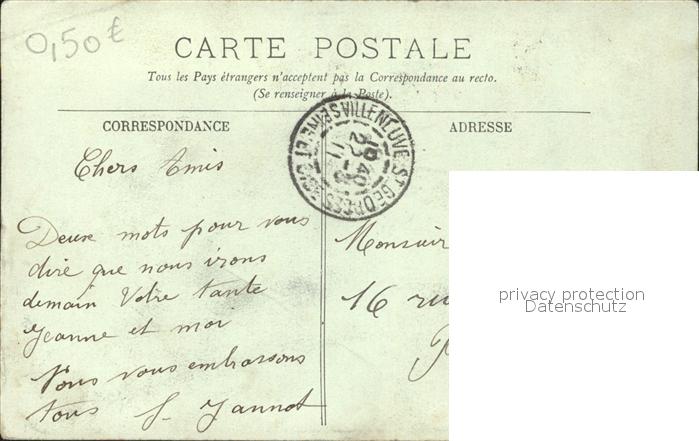 0,50€
CARTE POSTALE
Tous les Pays étrangers n'acceptent pas la Correspondance au recto.
(Se renseigner à la Poste).
CORRESPONDANCE
ADRESSE
VILLENEUVE-ST GEORGES
SEINE-ET-OISE
16 40
22-8
11
Chers Amis
Deux mots pour vous
dire que nous irons
demain Votre tante
Jeanne et moi
Nous vous embrassons
tous J. Jannot
Monsieur
16 ru
privacy protection
Datenschutz